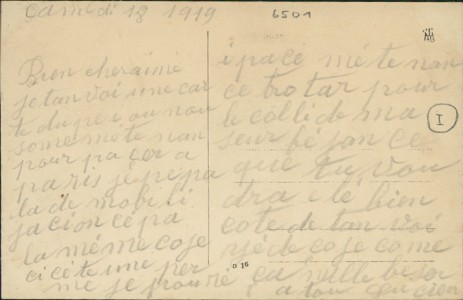 Samedi 18 1919
6501
Bien cher aimé
je tan voi une car
te du peı ou nou
some mète nan
pour pacer a
paris je pepa
la de mobili
jacion cé pa
la même coje
ci cé te une per
me je pouré
i pacé méte nan
ce tro tar pour
le colli de ma
seur fé jan ce
que tu vou
dra e lé bien
cote de tan voi
rjé de coje come
ça mille béso
a tou
I
D 16